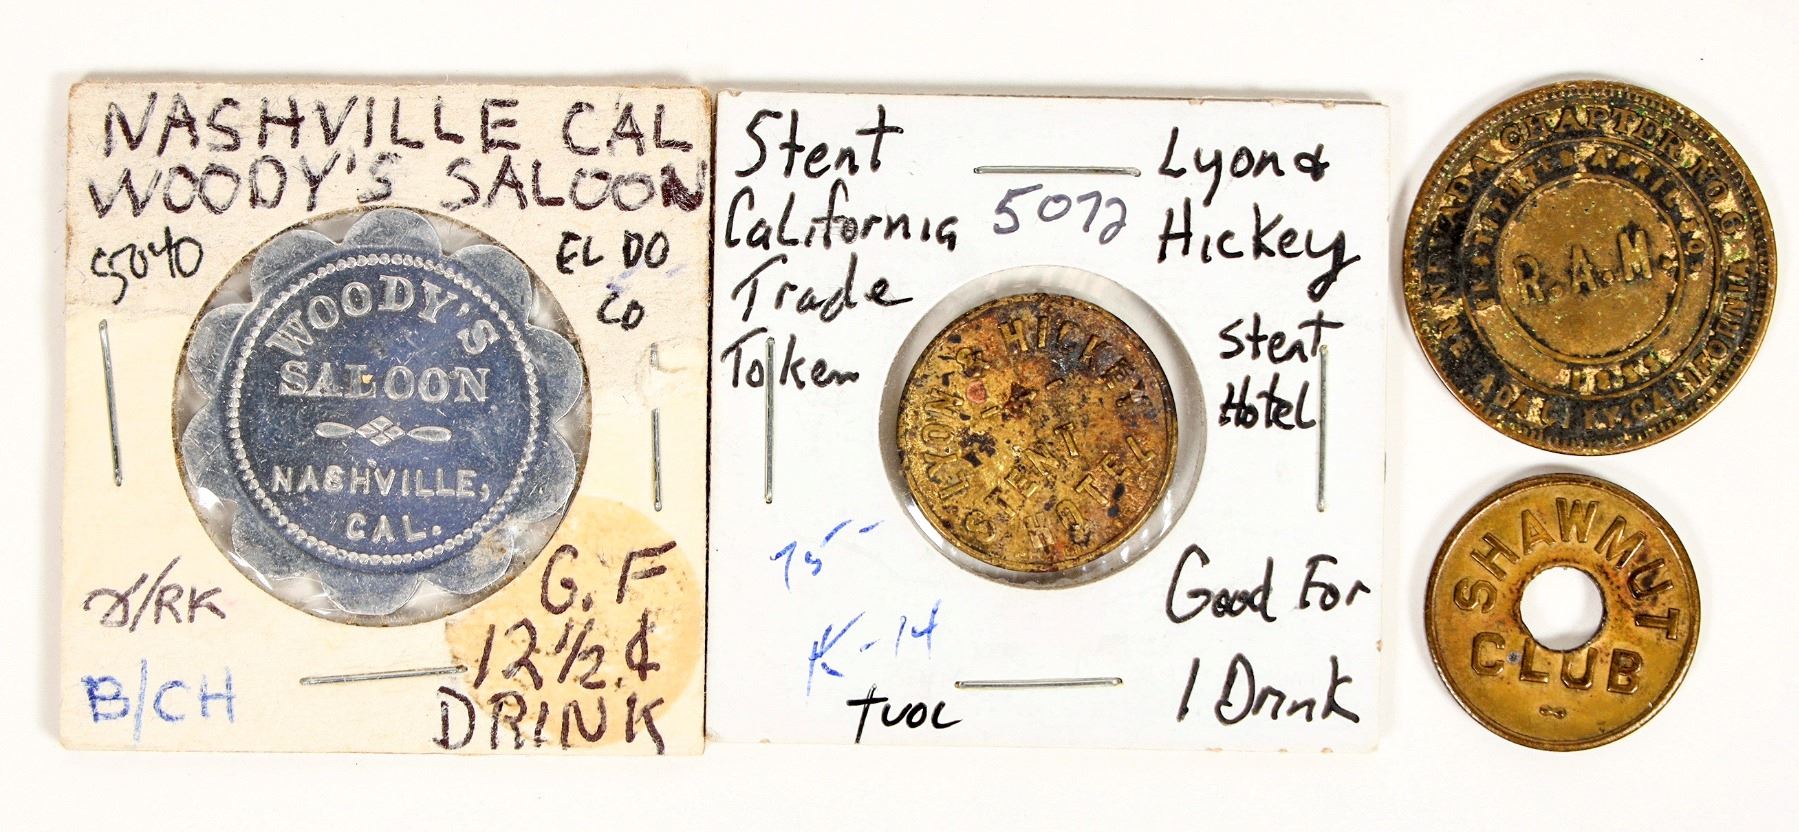 NASHVILLE CAL
WOODY'S SALOON
5040
EL DO
CO
WOODY'S
SALOON
NASHVILLE,
CAL.
G. F
12 1/2 ¢
DRINK
/RK
B/CH
Stent
California
Trade
Token
5072
Lyon &
Hickey
Stent
Hotel
LYON & HICKEY
STENT
HOTEL
75-
K-14
tuoc
Good For
1 Drink
NEVADA CHAPTER NO. 6
INSTITUTED APRIL
R.A.M.
CALIFORNIA
SHAWMUT
CLUB